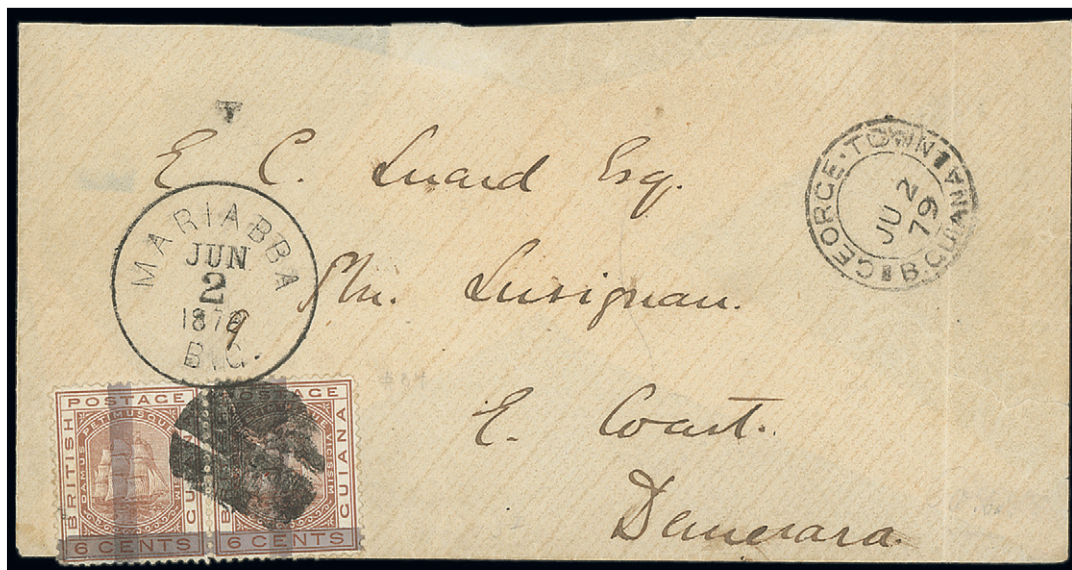 E. C. Luard Esq.
Pln. Lusignan.
E. Coast.
Demerara.
MARIABBA
JUN
2
1879
B.G.
GEORGE·TOWN
B.GUIANA
JU 2
79
POSTAGE
BRITISH
GUIANA
DAMUS PETIMUSQUE
6 CENTS
POSTAGE
GUIANA
QUE VICISSIM
6 CENTS